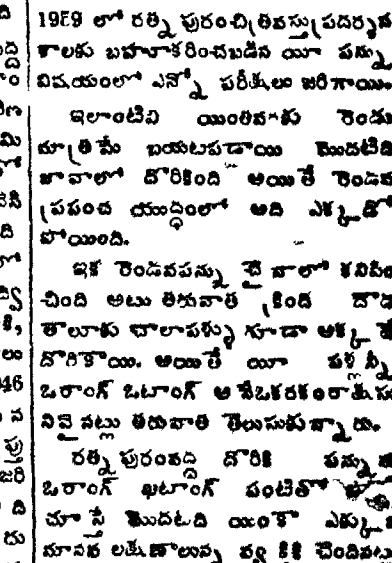 1959 లో రత్న పురంచిత్రవస్తు ప్రదర్శన
శాలకు బహూకరించబడిన యీ పన్ను
విషయంలో ఎన్నో పరీక్షలు జరిగాయి.
ఇలాంటివి యింతవరకు రెండు
మాత్రమే బయటపడాయి మొదటిది
జావాలో దొరికింది అయితే రెండవ
ప్రపంచ యుద్ధంలో అది ఎక్కడో
పోయింది.
ఇక రెండవపన్ను చైనాలో కనిపిం
చింది అటు తరువాత క్రింది దౌడ
తాలూకు చాలాపళ్ళు గూడా అక్కడే
దొరికాయి. అయితే యీ పళ్లన్నీ
ఒరాంగ్ ఒటాంగ్ అనేఒకరకంరాక్షస
నివై నట్లు తరువాత తెలుసుకున్నారు.
రత్న పురంవద్ద దొరికి పన్నును
ఒరాంగ్ ఖటాంగ్ పంటితో
చూస్తే మొదటిది యింకా ఎక్కువ
మానవ లక్షణాలున్న వ్యక్తికి చెందినట్లు